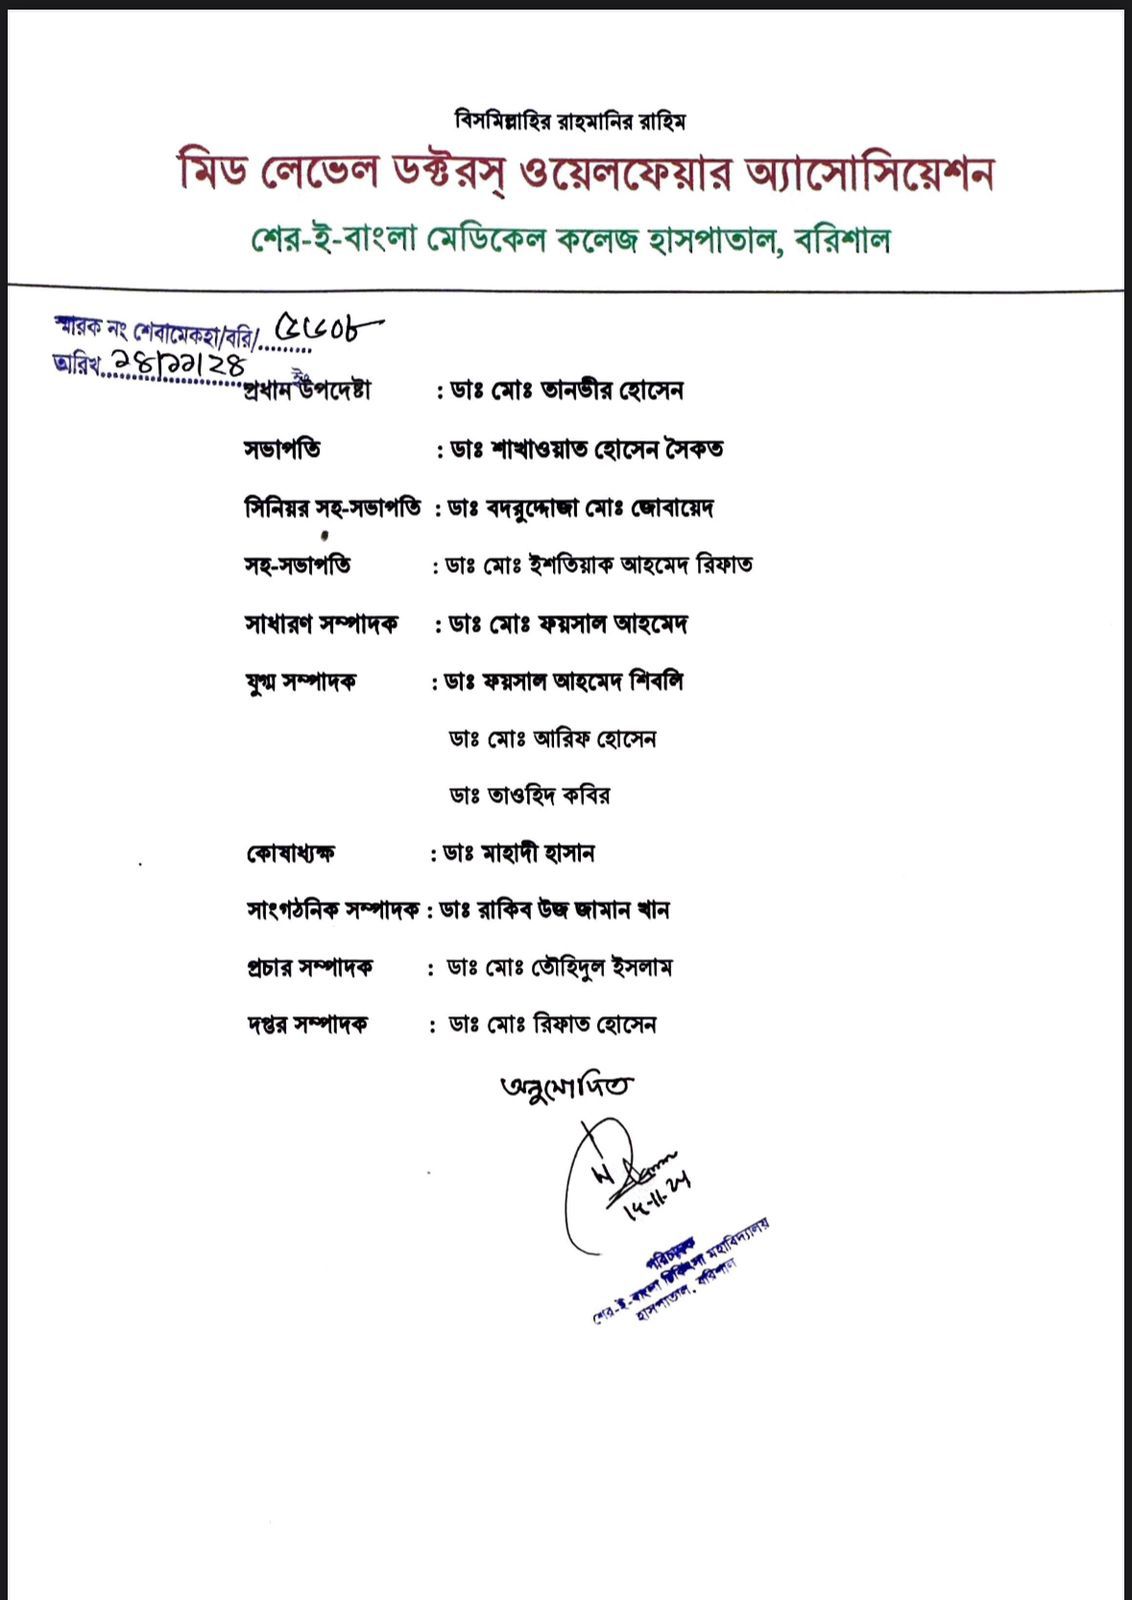 বিসমিল্লাহির রাহমানির রাহিম
মিড লেভেল ডক্টরস্ ওয়েলফেয়ার অ্যাসোসিয়েশন
শের-ই-বাংলা মেডিকেল কলেজ হাসপাতাল, বরিশাল
স্মারক নং শেবামেকহা/বরি/
তারিখ ২৪/১১/২৪
প্রধান উপদেষ্টা : ডাঃ মোঃ তানভীর হোসেন
সভাপতি : ডাঃ শাখাওয়াত হোসেন সৈকত
সিনিয়র সহ-সভাপতি : ডাঃ বদরুদ্দোজা মোঃ জোবায়েদ
সহ-সভাপতি : ডাঃ মোঃ ইশতিয়াক আহমেদ রিফাত
সাধারণ সম্পাদক : ডাঃ মোঃ ফয়সাল আহমেদ
যুগ্ম সম্পাদক : ডাঃ ফয়সাল আহমেদ শিবলি
ডাঃ মোঃ আরিফ হোসেন
ডাঃ তাওহিদ কবির
কোষাধ্যক্ষ : ডাঃ মাহাদী হাসান
সাংগঠনিক সম্পাদক : ডাঃ রাকিব উজ জামান খান
প্রচার সম্পাদক : ডাঃ মোঃ তৌহিদুল ইসলাম
দপ্তর সম্পাদক : ডাঃ মোঃ রিফাত হোসেন
অনুমোদিত
পরিচালক
শের-ই-বাংলা চিকিৎসা মহাবিদ্যালয়
হাসপাতাল, বরিশাল